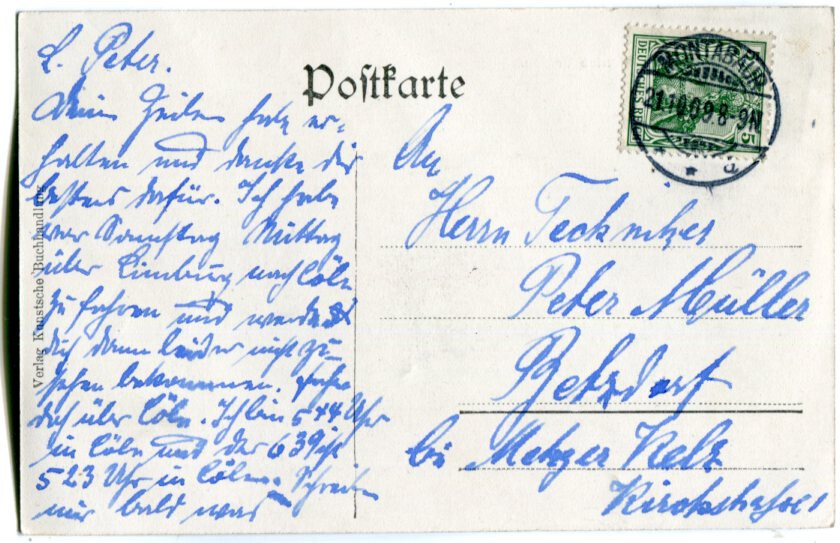 L. Peter.
Dein Zeilen habe er-
halten und danke dir
bestens dafür. Ich habe
vor Samstag Mittag
über Limburg nach Cöln
zu fahren und werde
dich dann leider nicht zu
sehen bekommen. Fahre
doch über Cöln. Ich bin 5 44 Uhr
in Cöln und der 6 39 ist
5 23 Uhr in Cöln. Schreibe
mir bald was
Postkarte
DEUTSCHES REICH
5
MONTABAUR
21.10.09. 8-9N
An
Herrn Techniker
Peter Müller
Betzdorf
bei Metzger Kelz
Verlag Kunstsche Buchhandlung